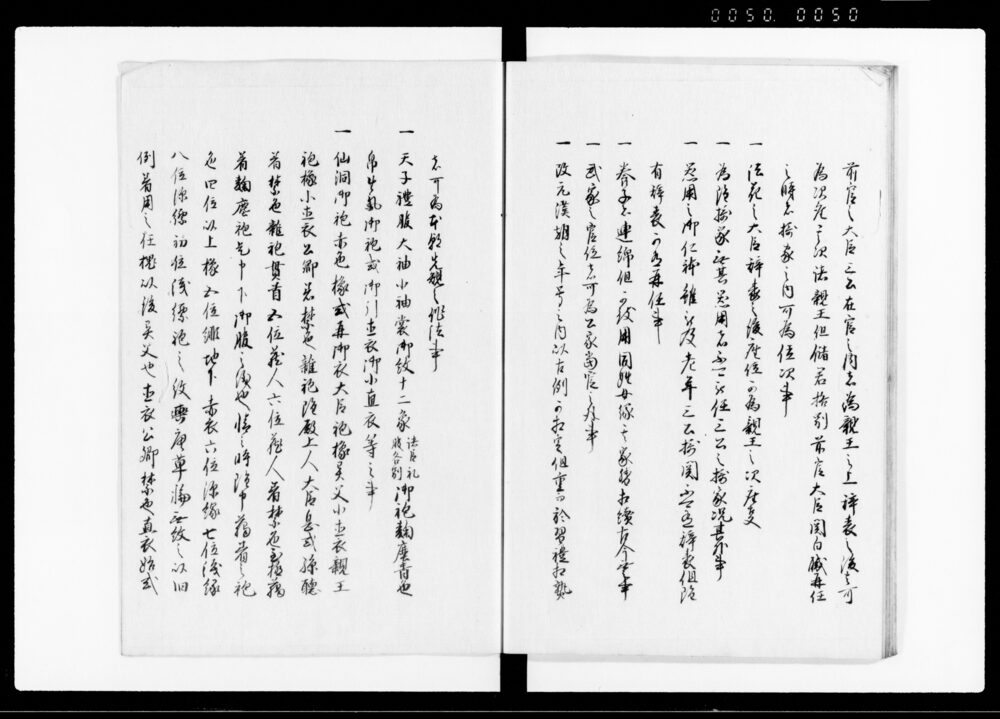 0050. 0050
前官之大臣三公在官之内者為親王之上辞表之後者可
為次座其次諸親王但儲君格別前官大臣関白職再任
之時者摂家之内可為位次事
一 清花之大臣辞表之後座位可為親王之次座事
一 為摂家無其器用者不可被任三公摂関況其外事
一 器用之御仁躰雖被及老年三公摂関不可有辞表但雖
有辞表可有再任事
一 養子者連綿但可被用同姓女縁其家督相続古今無事
一 武家之官位者可為公家当官之外事
一 改元漢朝之年号之内以吉例可相定但重而於習礼相熟
者可為本朝先規之作法事
一 天子礼服大袖小袖裳御紋十二象 諸臣礼服各別 御袍麹塵青色
帛生気御袍或御引直衣御小直衣等之事
一 仙洞御袍赤色橡或甘御衣大臣袍橡異文小直衣親王
袍橡小直衣公卿着禁色雑袍雖殿上人大臣息或孫聴
着禁色雑袍貫首五位蔵人六位蔵人着禁色至極臈
着麹塵袍是申下御服之儀也晴之時雖下臈着之袍
色四位以上橡五位緋地下赤衣六位深緑七位浅緑
八位深縹初位浅縹袍之紋轡唐草輪無紋之以旧
例着用之任槐以後異文也直衣公卿禁色直衣始或